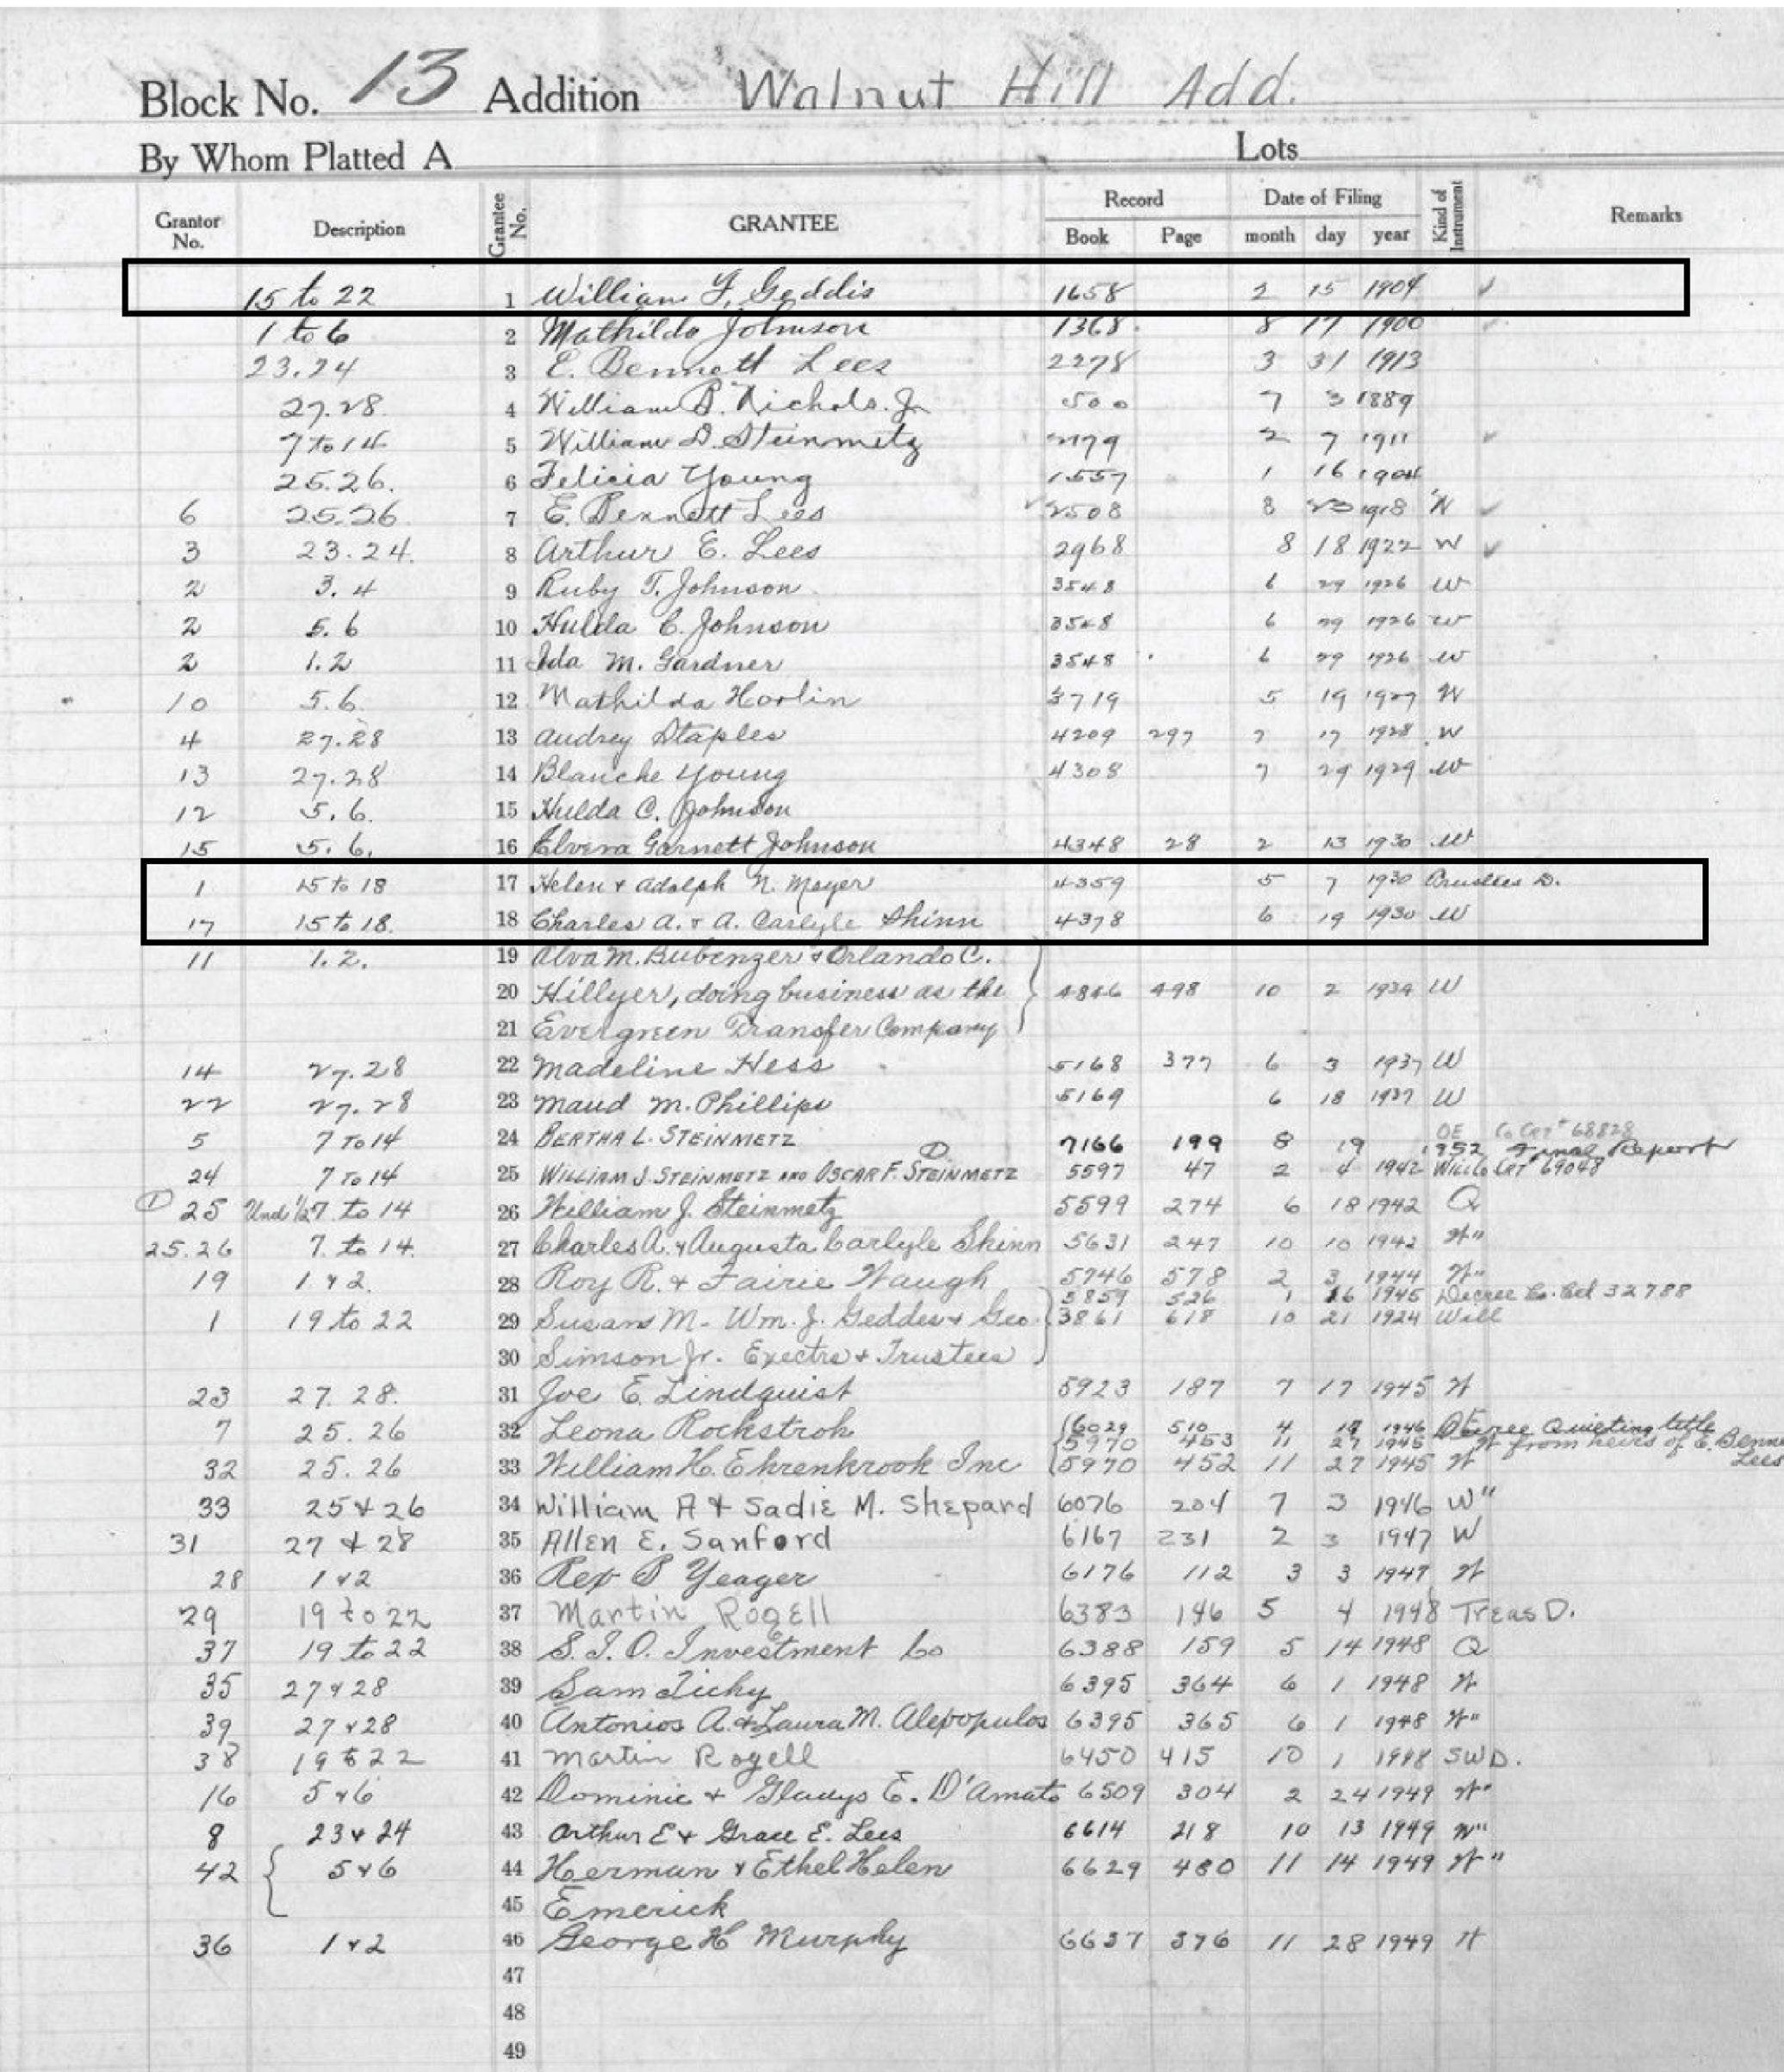 Block No. 13 Addition Walnut Hill Add.
By Whom Platted A Lots
Grantor No. Description Grantee No. GRANTEE Record Book Page Date of Filing month day year Kind of Instrument Remarks
15 to 22 1 William F. Geddis 1658 2 15 1904 ✓
1 to 6 2 Mathilda Johnson 1368 8 17 1900 ✓
23.24 3 E. Bennett Lees 2278 3 31 1913
27.28 4 William B. Nichols. Jr 500 7 3 1889
7 to 14 5 William D. Steinmetz 2179 2 7 1911 ✓
25.26. 6 Felicia Young 1557 1 16 1904
6 25.26 7 E. Bennett Lees 2508 8 23 1918 W ✓
3 23.24. 8 Arthur E. Lees 2968 8 18 1922 W ✓
2 3.4 9 Ruby T. Johnson 3548 6 29 1926 W
2 5.6 10 Hulda C. Johnson 3548 6 29 1926 W
2 1.2 11 Ida M. Gardner 3548 6 29 1926 W
10 5.6. 12 Mathilda Horlin 3719 5 19 1927 W
4 27.28 13 Audrey Staples 4209 297 7 17 1928 W
13 27.28 14 Blanche Young 4308 7 29 1929 W
12 5.6. 15 Hulda C. Johnson
15 5.6. 16 Elvera Garnett Johnson 4348 28 2 13 1930 W
1 15 to 18 17 Helen & Adolph N. Mayer 4359 5 7 1930 Trustees D.
17 15 to 18. 18 Charles A. & A. Carlyle Shinn 4378 6 19 1930 W
11 1.2. 19 Alva M. Bubenzer & Orlando C.
20 Hillyer, doing business as the 4846 498 10 2 1934 W
21 Evergreen Transfer Company
14 27.28 22 Madeline Hess 5168 377 6 3 1937 W
22 27.28 23 Maud M. Phillips 5169 6 18 1937 W
5 7 TO 14 24 BERTHA L. STEINMETZ 7166 199 8 19 1952 Co Crt # 68828 Final Report
24 7 TO 14 25 WILLIAM J. STEINMETZ AND OSCAR F. STEINMETZ ① 5597 47 2 4 1942 Will Co CRT # 69048
① 25 Und ½ 7 to 14 26 William J. Steinmetz 5599 274 6 18 1942 Q
25.26 7. to 14. 27 Charles A. & Augusta Carlyle Shinn 5631 247 10 10 1942 W"
19 1 & 2. 28 Roy R. & Fairie Waugh 5746 578 2 3 1944 W"
5859 526 1 16 1945 Decree Co. Crt 32788
1 19 to 22 29 Susan M. Wm. J. Geddes & Geo. 3861 618 10 21 1924 Will
30 Simson Jr. Exectrs & Trustees
23 27.28. 31 Joe E. Lindquist 5923 187 7 17 1945 W
7 25.26 32 Leona Rockstroh 6029 510 4 19 1946 Decree Quieting title
5970 453 11 27 1945 W from heirs of E. Benne
Lees
32 25.26 33 William H. Ehrenkrook Inc 5970 452 11 27 1945 W
33 25 & 26 34 William A & Sadie M. Shepard 6076 204 7 3 1946 W"
31 27 & 28 35 Allen E. Sanford 6167 231 2 3 1947 W
28 1 & 2 36 Rex P Yeager 6176 112 3 3 1947 W
29 19 to 22 37 Martin Rogell 6383 146 5 4 1948 Treas D.
37 19 to 22 38 S. I. O. Investment Co 6388 159 5 14 1948 Q
35 27 & 28 39 Sam Tichy 6395 364 6 1 1948 W
39 27 & 28 40 Antonios A. & Laura M. Alexopulos 6395 365 6 1 1948 W"
38 19 to 22 41 Martin Rogell 6450 415 10 1 1948 SWD.
16 5 & 6 42 Dominic & Gladys E. D'Amato 6509 304 2 24 1949 W"
8 23 & 24 43 Arthur E & Grace E. Lees 6614 218 10 13 1949 W"
42 5 & 6 44 Herman & Ethel Helen 6629 480 11 14 1949 W"
45 Emerick
36 1 & 2 46 George H Murphy 6637 376 11 28 1949 W
47
48
49